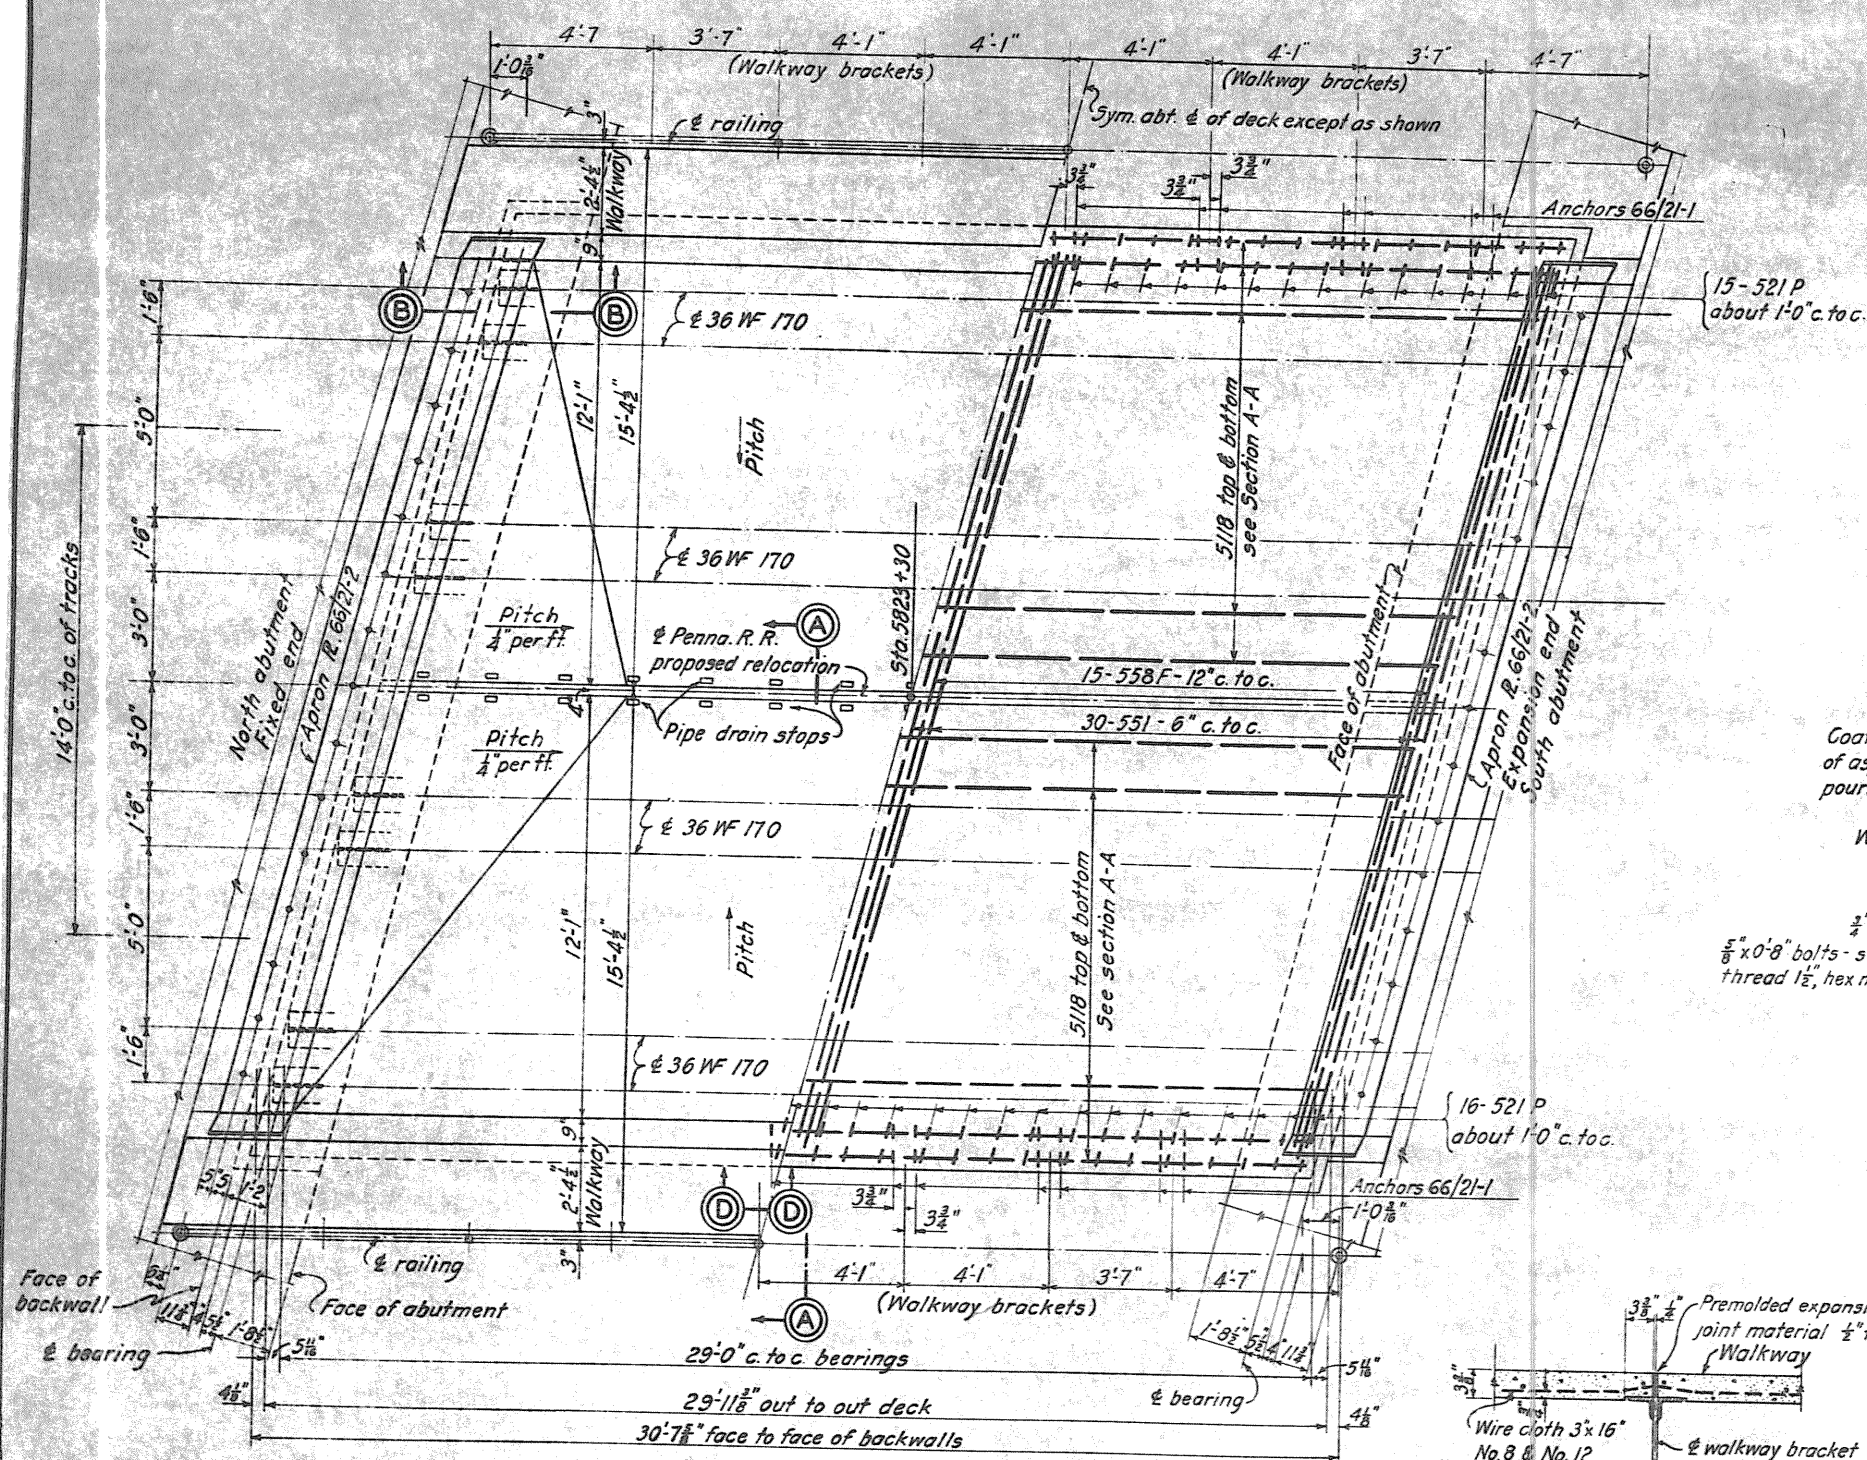 4'-7
3'-7"
4'-1"
4'-1"
4'-1"
4'-1"
3'-7
4'-7"
(Walkway brackets)
(Walkway brackets)
1'-0 3/16"
3"
℄ railing
Sym. abt. ℄ of deck except as shown
Walkway
2'-4½"
9"
3¾"
3¾"
3¾"
Anchors 66/21-1
15-521 P
about 1'-0" c. to c.
B
B
℄ 36 WF 170
1'-6"
5'-0"
1'-6"
3'-0"
3'-0"
1'-6"
5'-0"
1'-6"
14'-0" c. to c. of tracks
12'-1"
15'-4½"
Pitch
5118 top & bottom
see Section A-A
North abutment
Fixed end
Apron ℞. 66/21-2
℄ 36 WF 170
Pitch
¼" per ft.
A
℄ Penna. R. R.
proposed relocation
Sta. 5823+30
15-558 F-12" c. to c.
4"
Pipe drain stops
30-551-6" c. to c.
Pitch
¼" per ft.
Face of abutment
Apron ℞. 66/21-2
Expansion end
South abutment
℄ 36 WF 170
12'-1"
15'-4½"
Pitch
5118 top & bottom
See section A-A
℄ 36 WF 170
16-521 P
about 1'-0" c. to c.
9"
2'-4½"
Walkway
3"
5"
5"
1'-2"
D
D
3¾"
3¾"
Anchors 66/21-1
1'-0 3/16"
℄ railing
4'-1"
4'-1"
3'-7"
4'-7"
(Walkway brackets)
A
Face of
backwall
Face of abutment
℄ bearing
4"
5½"
1'-8½"
5 11/16"
1'-8½"
5½"
4"
5 11/16"
29'-0" c. to c. bearings
℄ bearing
4⅛"
29'-11⅜" out to out deck
4⅛"
30'-7⅝" face to face of backwalls
Coat
of as
pour
W
¾"
⅝" x 0'-8" bolts - s
thread 1½", hex n
3⅜"
¼"
Premolded expansi
joint material ½"
Walkway
3⅜"
Wire cloth 3" x 16"
No. 8 & No. 12
℄ walkway bracket